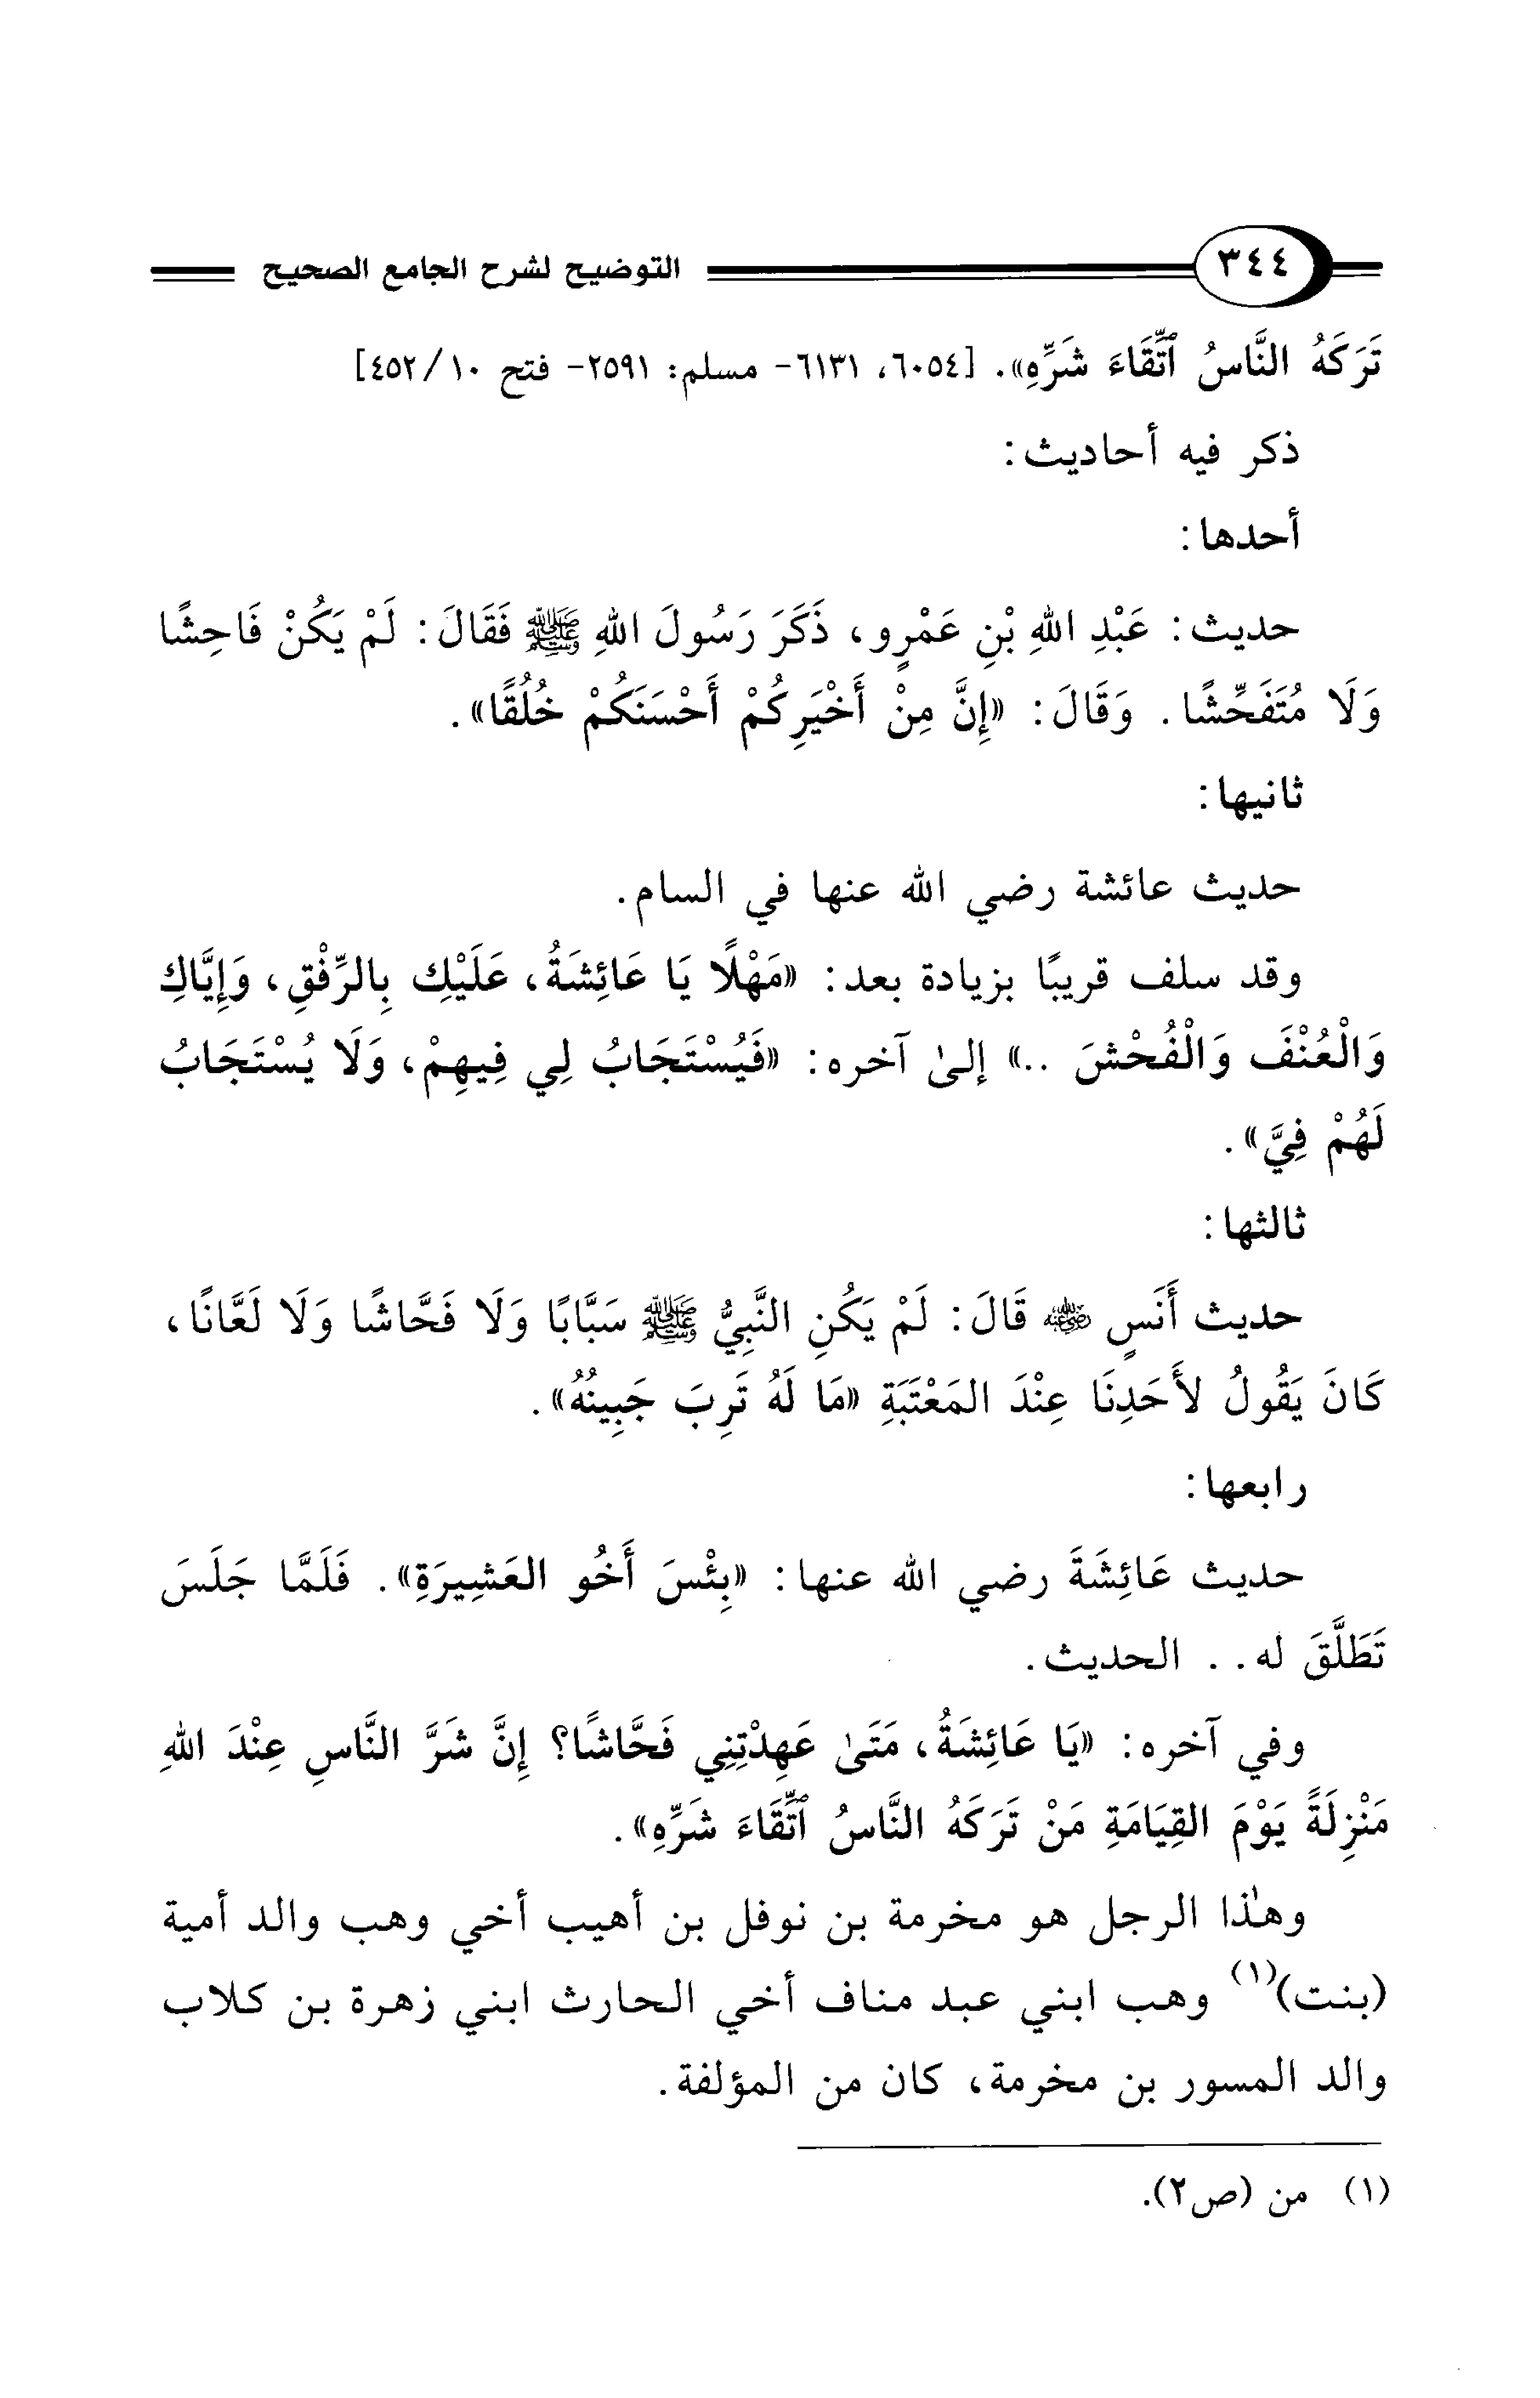 ٣٤٤ التوضيح لشرح الجامع الصحيح
تَرَكَهُ النَّاسُ ٱتِّقَاءَ شَرِّهِ». [٦٠٥٤، ٦١٣١- مسلم: ٢٥٩١- فتح ١٠/ ٤٥٢]
ذكر فيه أحاديث:
أحدها:
حديث: عَبْدِ اللهِ بْنِ عَمْرٍو، ذَكَرَ رَسُولَ اللهِ ﷺ فَقَالَ: لَمْ يَكُنْ فَاحِشًا
وَلَا مُتَفَحِّشًا. وَقَالَ: «إِنَّ مِنْ أَخْيَرِكُمْ أَحْسَنَكُمْ خُلُقًا».
ثانيها:
حديث عائشة رضي الله عنها في السام.
وقد سلف قريبًا بزيادة بعد: «مَهْلًا يَا عَائِشَةُ، عَلَيْكِ بِالرِّفْقِ، وَإِيَّاكِ
وَالْعُنْفَ وَالْفُحْشَ ..» إلىٰ آخره: «فَيُسْتَجَابُ لِي فِيهِمْ، وَلَا يُسْتَجَابُ
لَهُمْ فِيَّ».
ثالثها:
حديث أَنَسٍ رضي الله عنه قَالَ: لَمْ يَكُنِ النَّبِيُّ ﷺ سَبَّابًا وَلَا فَحَّاشًا وَلَا لَعَّانًا،
كَانَ يَقُولُ لأَحَدِنَا عِنْدَ المَعْتَبَةِ «مَا لَهُ تَرِبَ جَبِينُهُ».
رابعها:
حديث عَائِشَةَ رضي الله عنها: «بِئْسَ أَخُو العَشِيرَةِ». فَلَمَّا جَلَسَ
تَطَلَّقَ له.. الحديث.
وفي آخره: «يَا عَائِشَةُ، مَتَىٰ عَهِدْتِنِي فَحَّاشًا؟ إِنَّ شَرَّ النَّاسِ عِنْدَ اللهِ
مَنْزِلَةً يَوْمَ القِيَامَةِ مَنْ تَرَكَهُ النَّاسُ ٱتِّقَاءَ شَرِّهِ».
وهٰذا الرجل هو مخرمة بن نوفل بن أهيب أخي وهب والد أمية
(بنت)(١) وهب ابني عبد مناف أخي الحارث ابني زهرة بن كلاب
والد المسور بن مخرمة، كان من المؤلفة.
(١) من (ص٢).